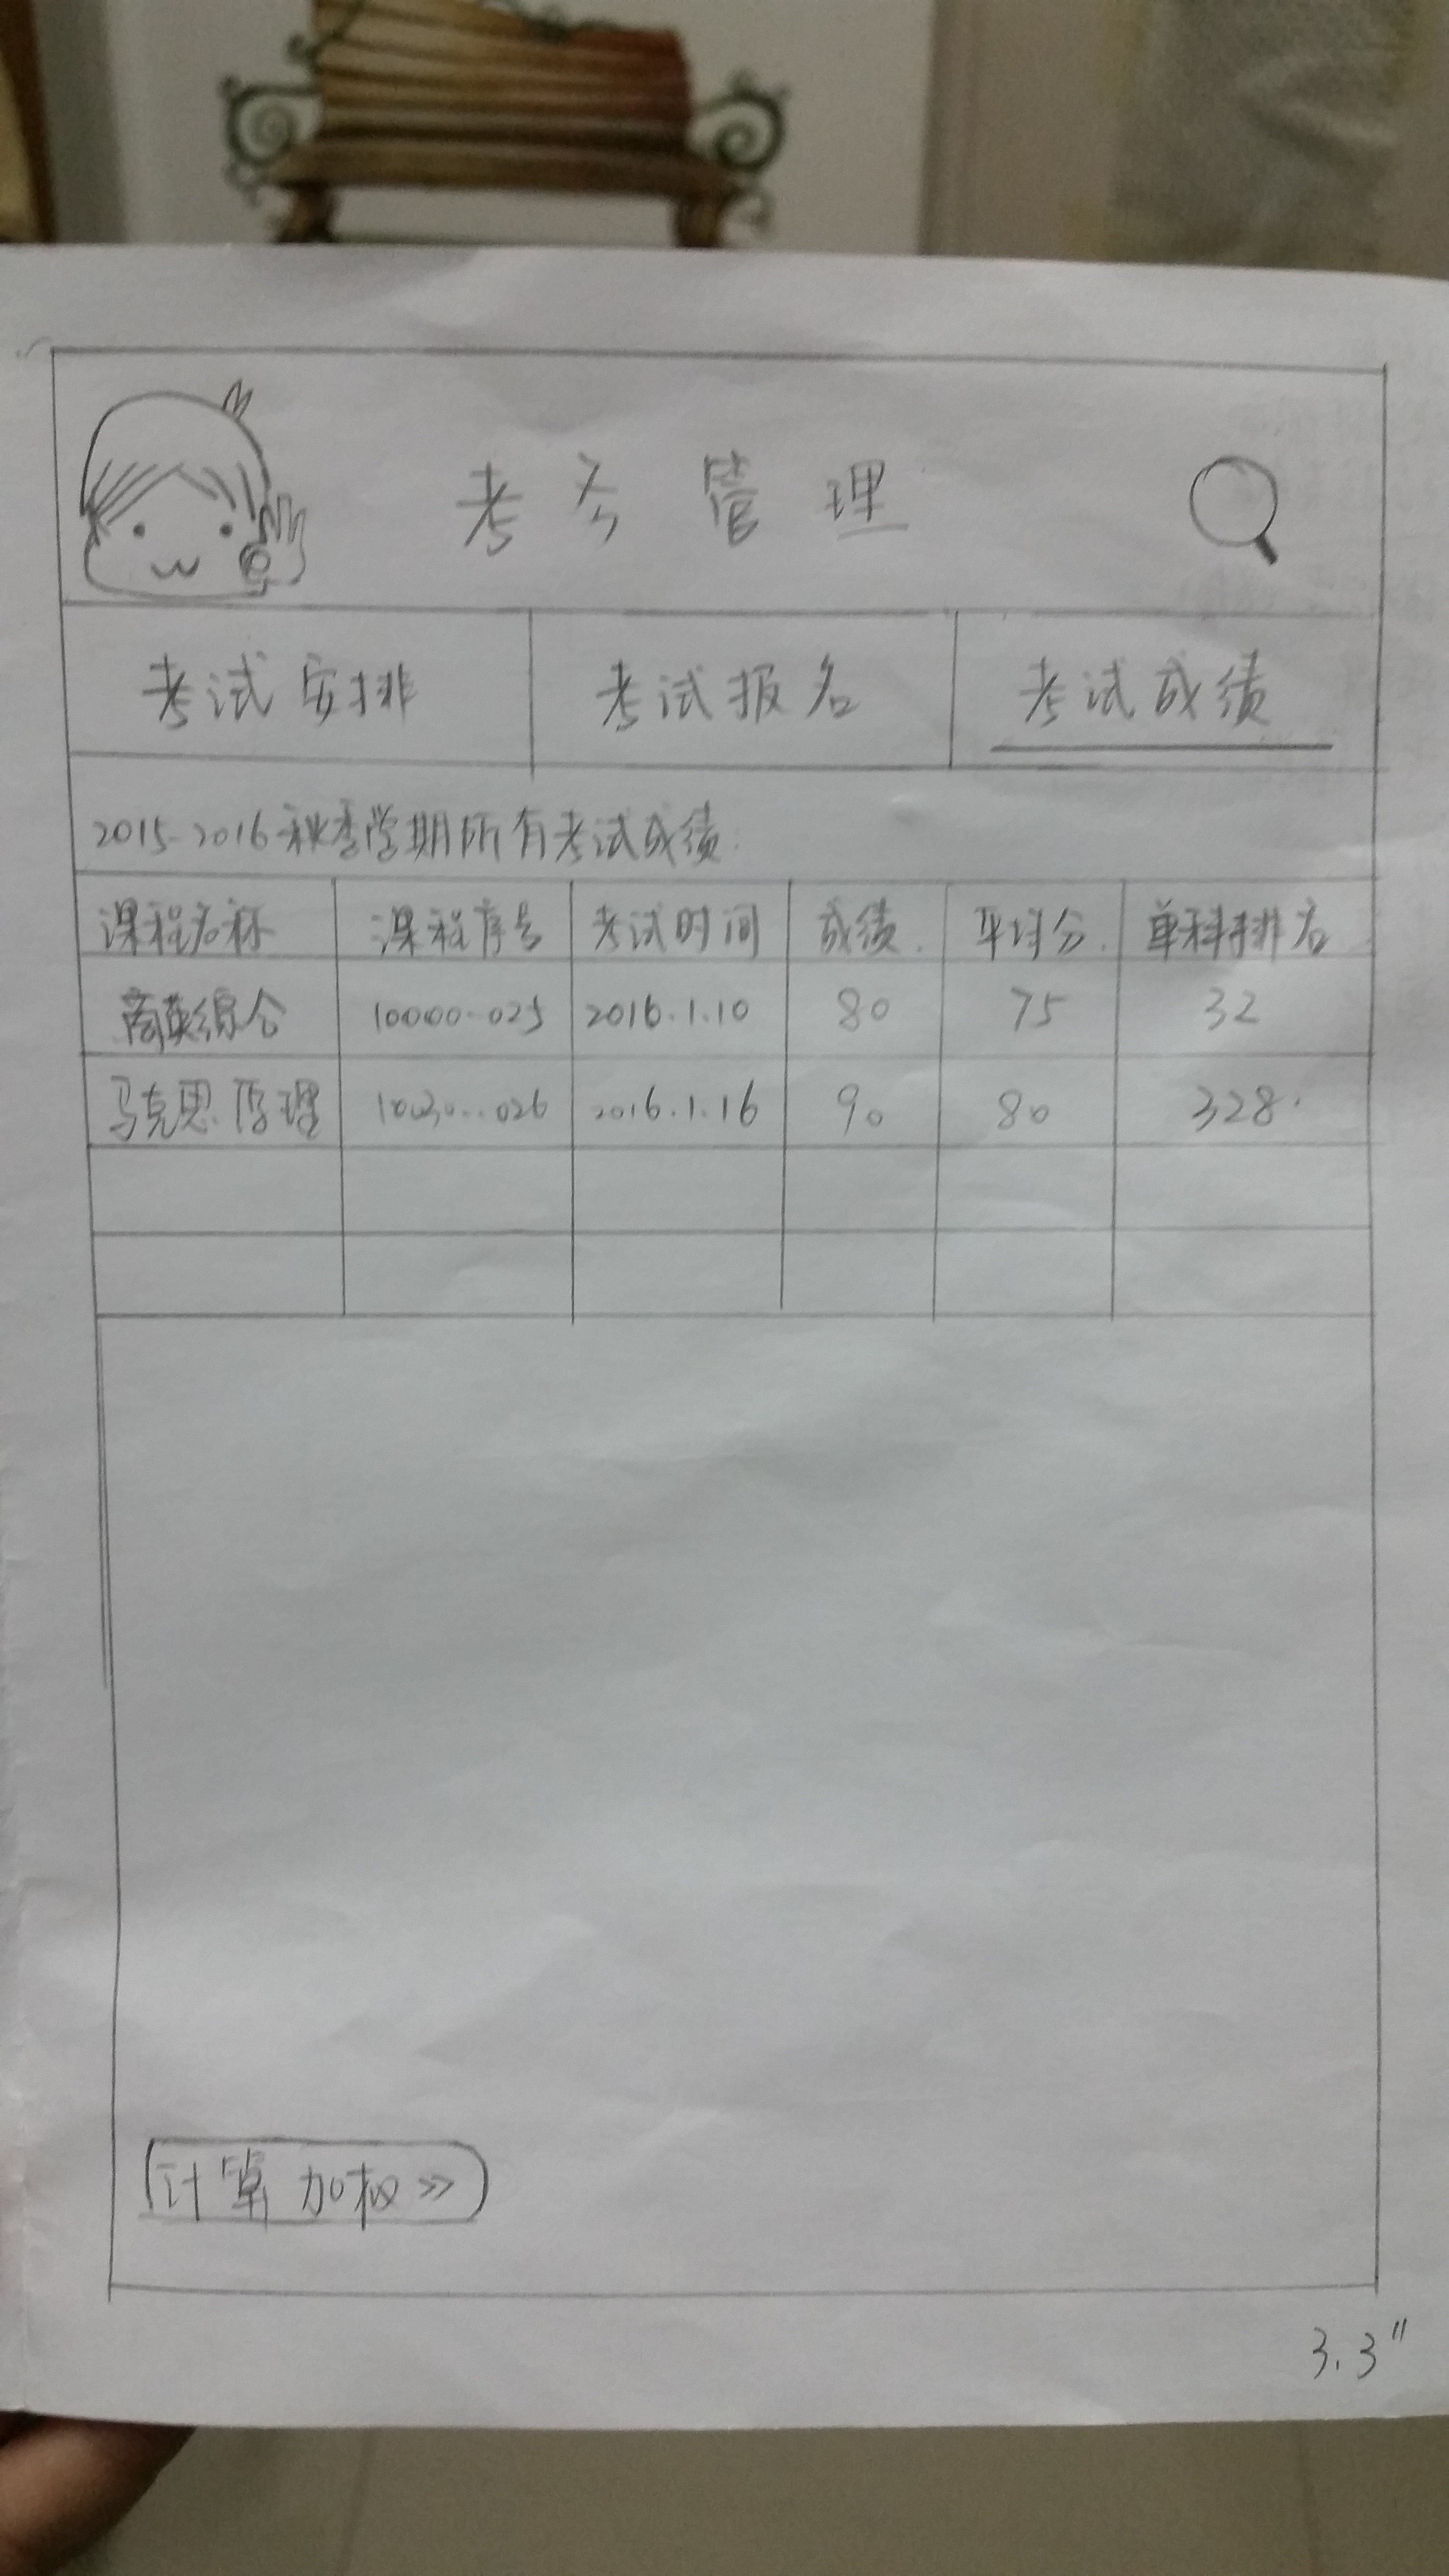 考务管理
考试安排 考试报名 考试成绩
2015-2016秋季学期所有考试成绩
课程名称 课程序号 考试时间 成绩 平均分 单科排名
商英综合 10000..025 2016.1.10 80 75 32
马克思原理 2016.1.16 90 80 328
计算加权>>
3.3"